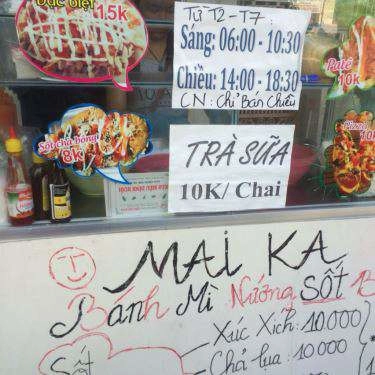 Đặc biệt
15k
Từ T2-T7:
Sáng: 06:00 - 10:30
Chiều: 14:00 - 18:30
CN: Chỉ Bán Chiều
Patê
10k
Sốt chà bông
8k
TRÀ SỮA
10K/ Chai
MAI KA
Bánh Mì Nướng SỐT
Xúc Xích: 10.000
Chả lụa: 10.000
Sốt